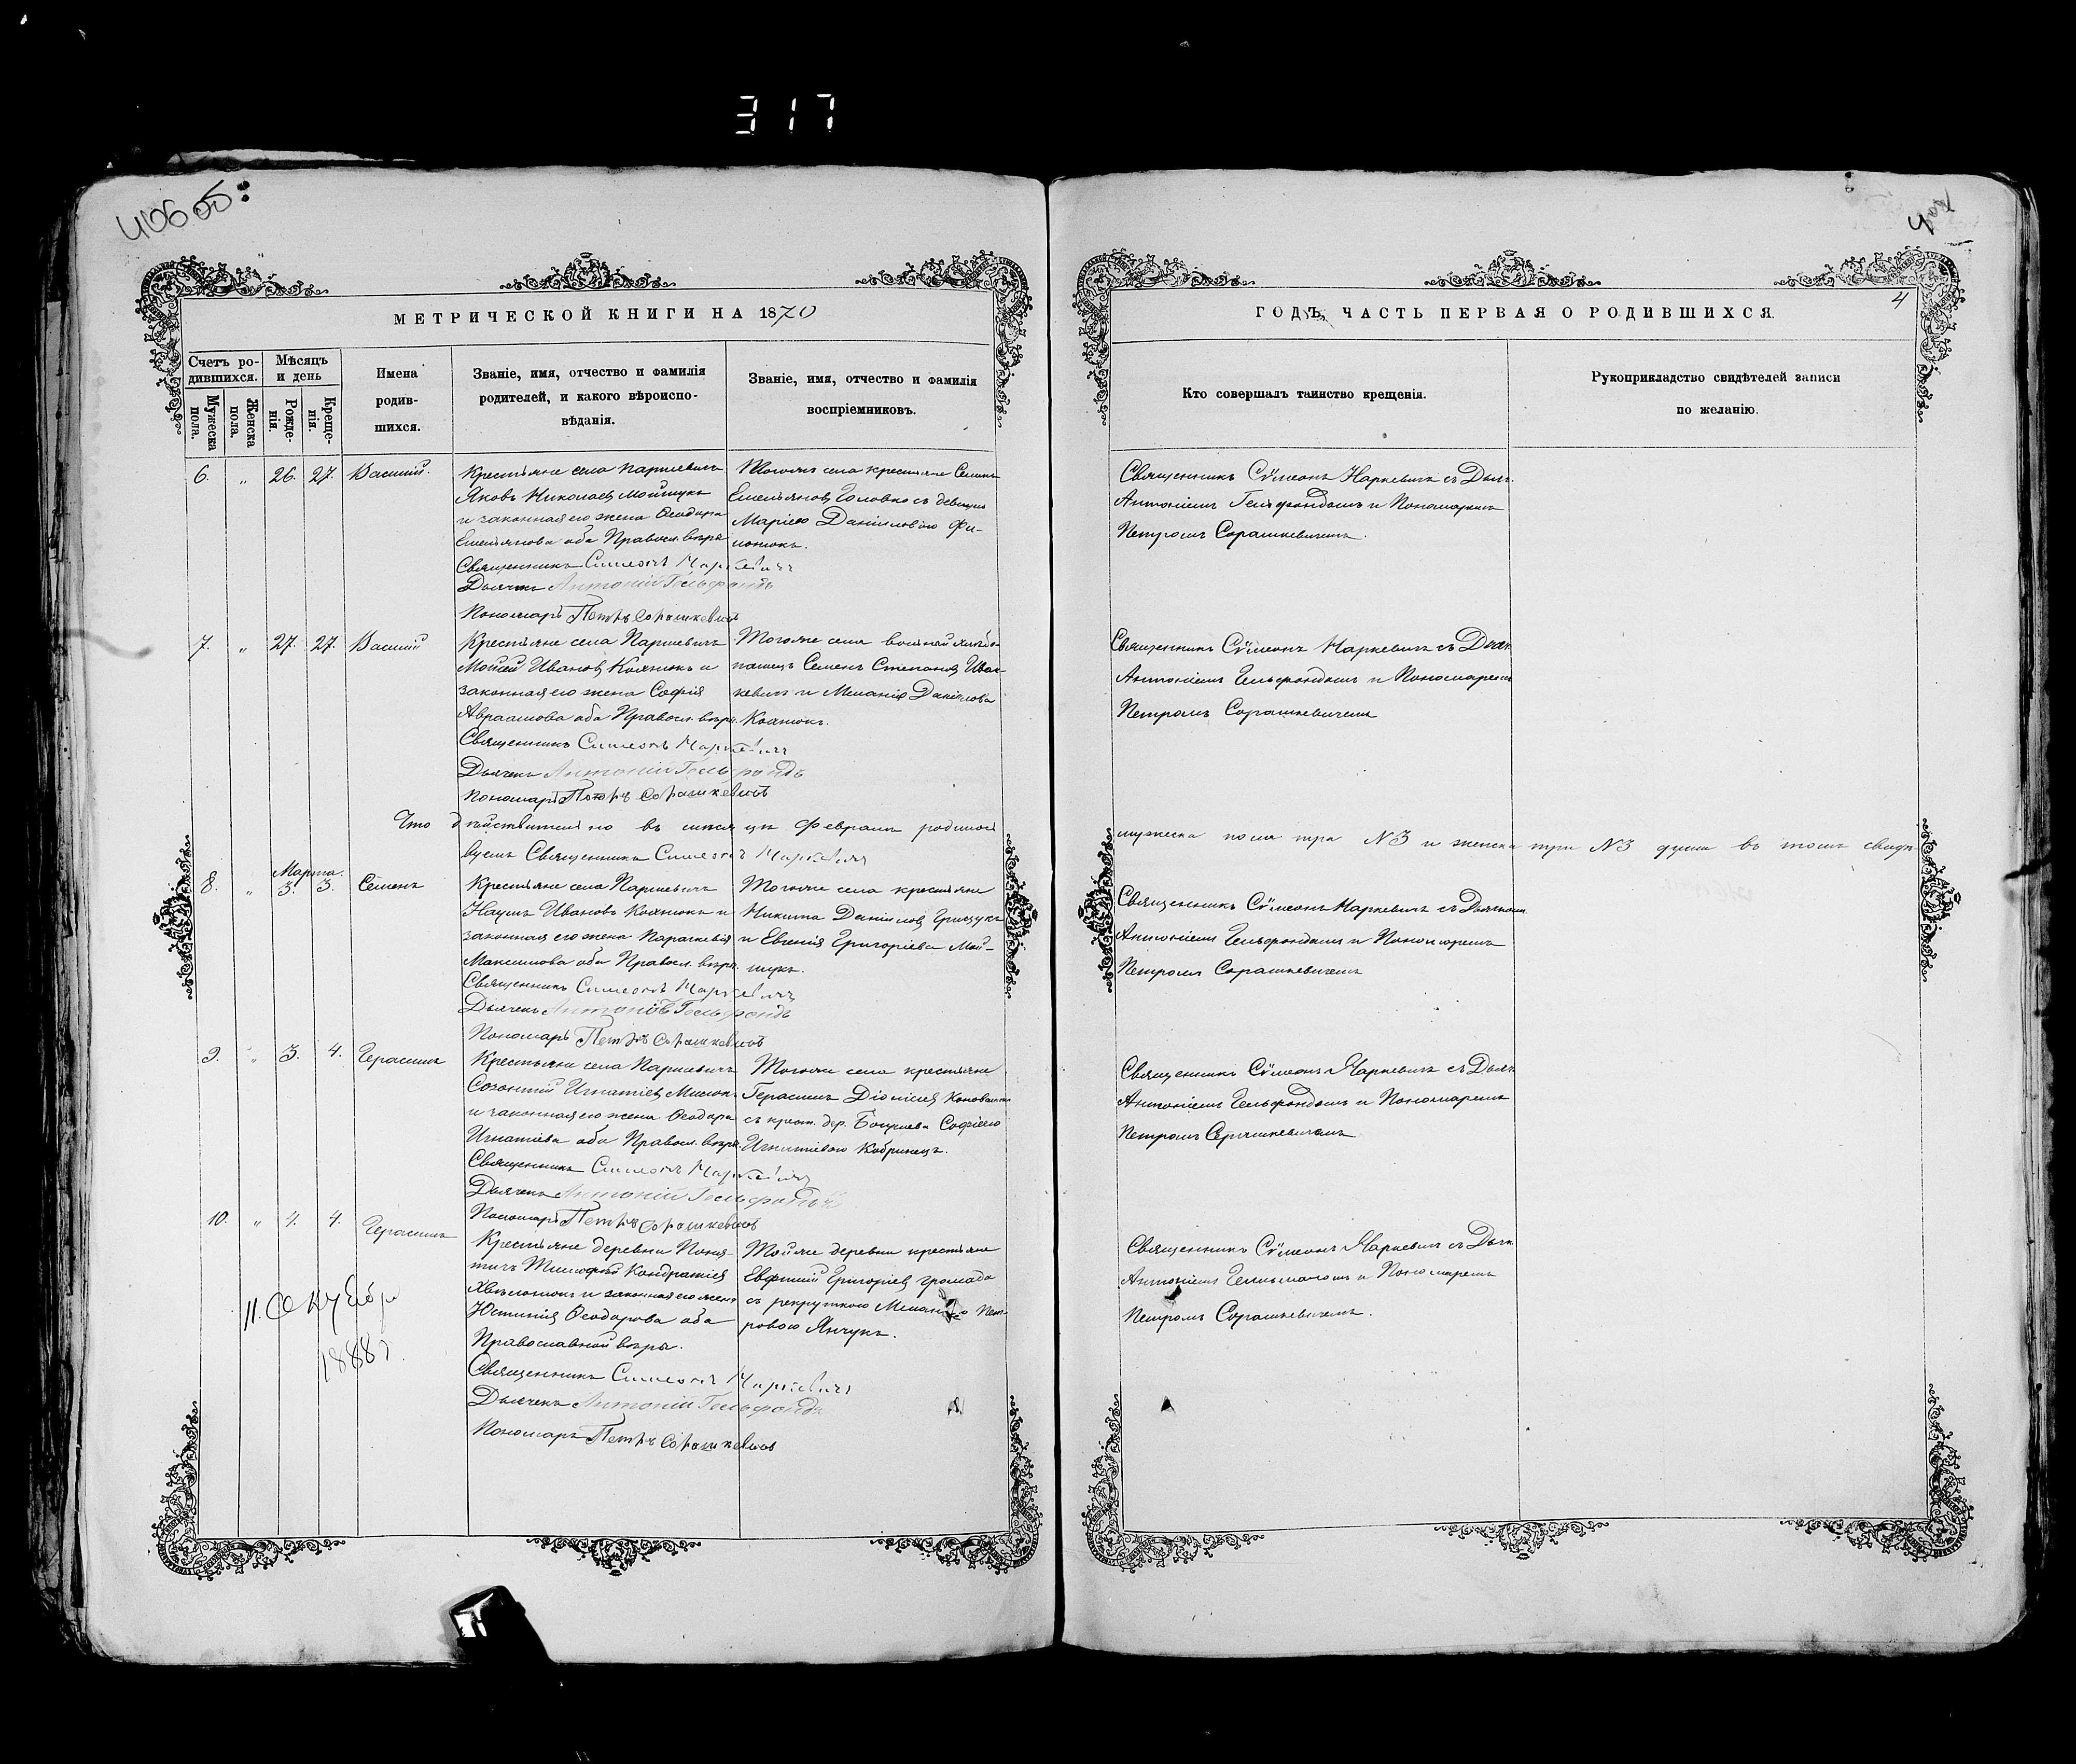 317
406 об:
4
4
МЕТРИЧЕСКОЙ КНИГИ НА 1870
ГОДЪ, ЧАСТЬ ПЕРВАЯ О РОДИВШИХСЯ.
Счетъ ро-
дившихся.
Мужеска пола.
Женска пола.
Мѣсяцъ
и день
Рожде-
нія.
Креще-
нія.
Имена
родив-
шихся.
Званіе, имя, отчество и фамилія
родителей, и какого вѣроиспо-
вѣданія.
Званіе, имя, отчество и фамилія
воспріемниковъ.
Кто совершалъ таинство крещенія.
Рукоприкладство свидѣтелей записи
по желанію.
6. " 26. 27. Василій.
Крестьяне села Паршевичъ
Яковъ Николаевъ Мойшукъ
и законная его жена Ѳеодора
Емельянова оба Правосл. вѣры
Священникъ Симеонъ Маркевичъ
Дьячекъ Антоній Гельфондъ
Пономарь Петръ Сорашкевичъ
Тогожъ села крестьяне Семенъ
Емельяновъ Головко съ девицею
Маріею Даніиловою Фи-
Священникъ Сѵмеонъ Маркевичъ съ Дьяч.
Антоніемъ Гельфондомъ и Пономаремъ
Петромъ Сорашкевичемъ.
7. " 27. 27. Василій
Крестьяне села Паршевичъ
Мойсей Ивановъ Кохнюкъ и
законная его жена Софія
Авраамова оба Правосл. вѣры.
Священникъ Симеонъ Маркевичъ
Дьячекъ Антоній Гельфондъ
Пономарь Петръ Сорашкевичъ
Тогоже села
Семенъ Степановъ Иваш-
кевичъ и Меланія Даніилова
Кохнюкъ.
Священникъ Сѵмеонъ Маркевичъ съ Дьяч.
Антоніемъ Гельфондомъ и Пономаремъ
Петромъ Сорашкевичемъ
Что дѣйствительно въ мѣсяцѣ Февралѣ родилось мужеска пола три №3 и женска три №3 души въ томъ свидѣ-
Священникъ Симеонъ Маркевичъ
Марта.
8. " 3. 3. Семенъ
Крестьяне села Паршевичъ
Наумъ Ивановъ Кохнюкъ и
законная его жена Параскевія
Максимова оба Правосл. вѣры.
Священникъ Симеонъ Маркевичъ
Дьячекъ Антоній Гельфондъ
Пономарь Петръ Сорашкевичъ
Тогоже села крестьяне
Никита Даніиловъ Грицукъ
и Евгенія Григоріева Мой-
шукъ.
Священникъ Сѵмеонъ Маркевичъ съ Дьячкомъ
Антоніемъ Гельфондомъ и Пономаремъ
Петромъ Сорашкевичемъ
9. " 3. 4. Герасимъ
Крестьяне села Паршевичъ
Созонтій Игнатіевъ
и законная его жена Ѳеодора
Игнатіева оба Правосл. вѣры.
Священникъ Симеонъ Маркевичъ
Дьячекъ Антоній Гельфондъ
Пономарь Петръ Сорашкевичъ
Тогоже села крестьяне
Герасимъ Діонисіевъ
съ крест. дер. Софіею
Игнатіевою Кобринецъ.
Священникъ Сѵмеонъ Маркевичъ съ Дьяч.
Антоніемъ Гельфондомъ и Пономаремъ
Петромъ Сорашкевичемъ
10. " 4. 4. Герасимъ
Крестьяне деревни Поня-
тичъ Тимофей Кондратіевъ
и законная его жена
Юстинія Ѳеодорова оба
Православной вѣры.
Священникъ Симеонъ Маркевичъ
Дьячекъ Антоній Гельфондъ
Пономарь Петръ Сорашкевичъ
Тойже деревни крестьяне
Евфимій Григоріевъ Громада
съ рекруткою Меланіею Пет-
ровою Янчукъ.
Священникъ Сѵмеонъ Маркевичъ съ Дьяч.
Антоніемъ и Пономаремъ
Петромъ Сорашкевичемъ.